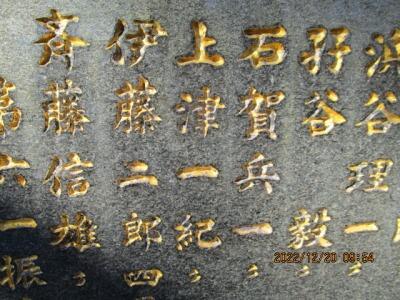 浜谷理一
谷毅〃
石賀兵一〃
上津一紀〃
伊藤二郎四
斉藤信雄〃
第六一振
2022/12/20 09:54